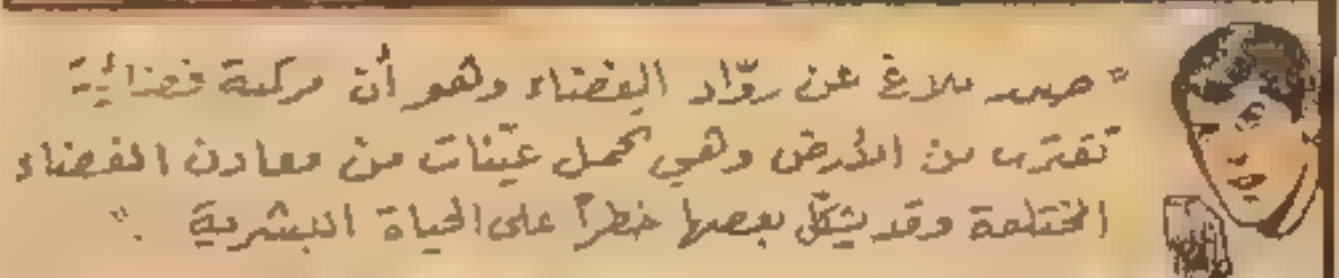 "صدر بلاغ عن روّاد الفضاء وهو أن مركبة فضائية
تقترب من الأرض وهي تحمل عيّنات من معادن الفضاء
المختلفة وقد يشكّل بعضها خطراً على الحياة البشرية . "